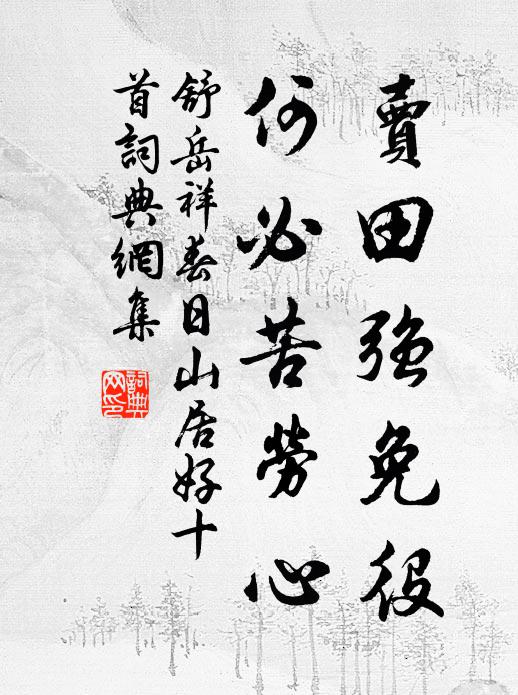 賣田強免役
何必苦勞心
舒岳祥春日山居好十
首詞典網集
詞典
网印